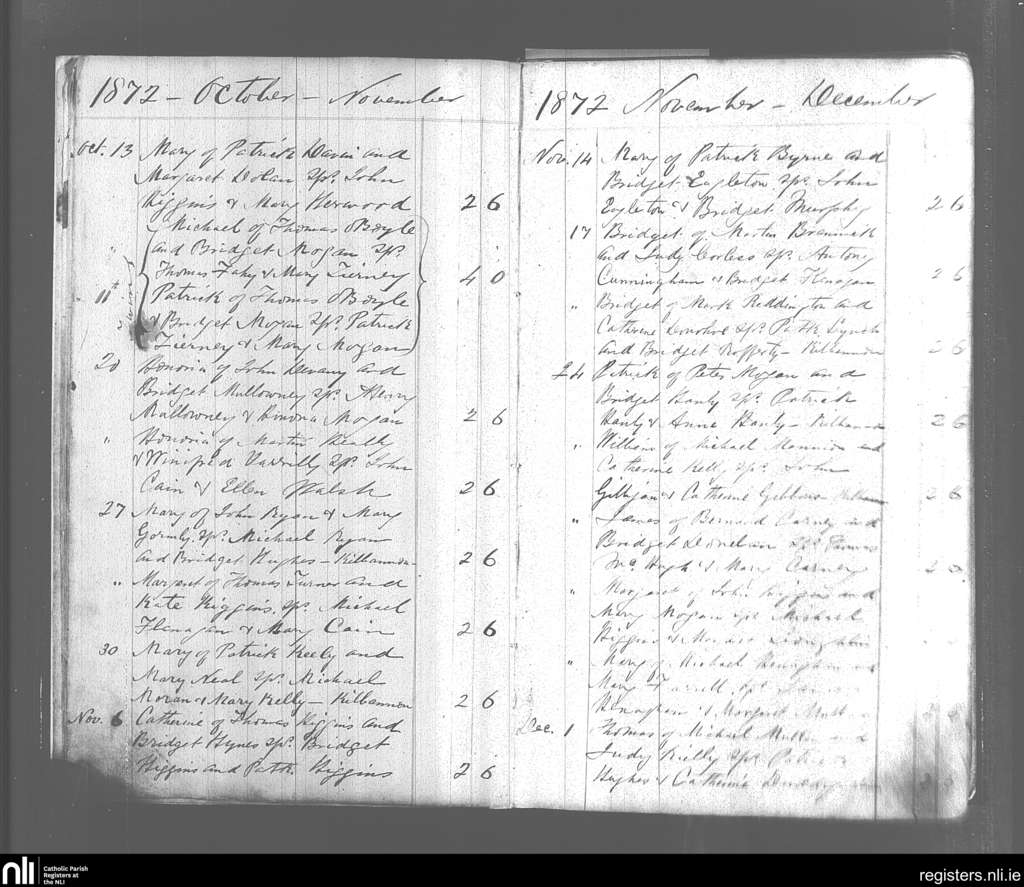 1872 - October - November
Oct. 13 Mary of Patrick Davin and
Margaret Dolan Sps. John
Higgins & Mary Kerwood 2 6
" Michael of Thomas OBoyle
and Bridget Mogan Sps.
Thomas Fahy & Mary Tierney 4 0
11th Patrick of Thomas OBoyle
& Bridget Mogan Sps. Patrick
Tierney & Mary Mogan
20 Honoria of John Devany and
Bridget Mullowney Sps. Henry
Mullowney & Honoria Mogan 2 6
" Honoria of Martin Healy
& Winifred Varrilly Sps. John
Cain & Ellen Walsh 2 6
27 Mary of John Ryan & Mary
Gormly Sps. Michael Ryan
and Bridget Hughes - Kilbannon 2 6
" Margaret of Thomas Turner and
Kate Higgins Sps. Michael
Flanagan & Mary Cain 2 6
30 Mary of Patrick Keely and
Mary Neal Sps. Michael
Moran & Mary Kelly - Kilbannon 2 6
Nov. 6 Catherine of Thomas Higgins and
Bridget Hynes Sps. Bridget
Higgins and Patk. Higgins 2 6
1872 November - December
Nov. 14 Mary of Patrick Byrne and
Bridget Eagleton Sps. John
Eagleton & Bridget Murphy 2 6
17 Bridget of Martin Brannick
and Judy Corless Sps. Antony
Cunningham & Bridget Flanagan 2 6
" Bridget of Mark Reddington and
Catherine Donohoe Sps. Patk Lynch
and Bridget Rafferty - Kilbannon 2 6
24 Patrick of Peter Mogan and
Bridget Hanly Sps. Patrick
Hanly & Anne Hanly - Kilbannon 2 6
" William of Michael Mannion and
Catherine Kelly Sps. John
Gilligan & Catherine Gibbons Kilbannon 2 6
" James of Bernard Carney and
Bridget Donelan Sps. Thomas
McHugh & Mary Carney 2 6
" Margaret of John Higgins and
Mary Mogan Sps. Michael
Higgins &
" Mary of Michael Henaghan and
Mary Farrell Sps. James
Henaghan & Margaret
Dec. 1 Thomas of Michael Mullin and
Judy Kelly Sps. Patrick
Hughes & Catherine
nli
Catholic Parish
Registers at
the NLI
registers.nli.ie